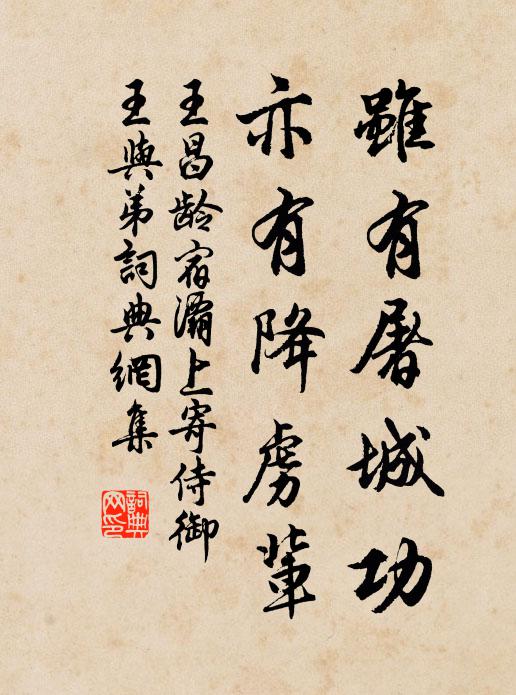 雖有屠城功
亦有降虜輩
王昌龄宿灞上寄侍御
王與弟詞典網集
詞典网印